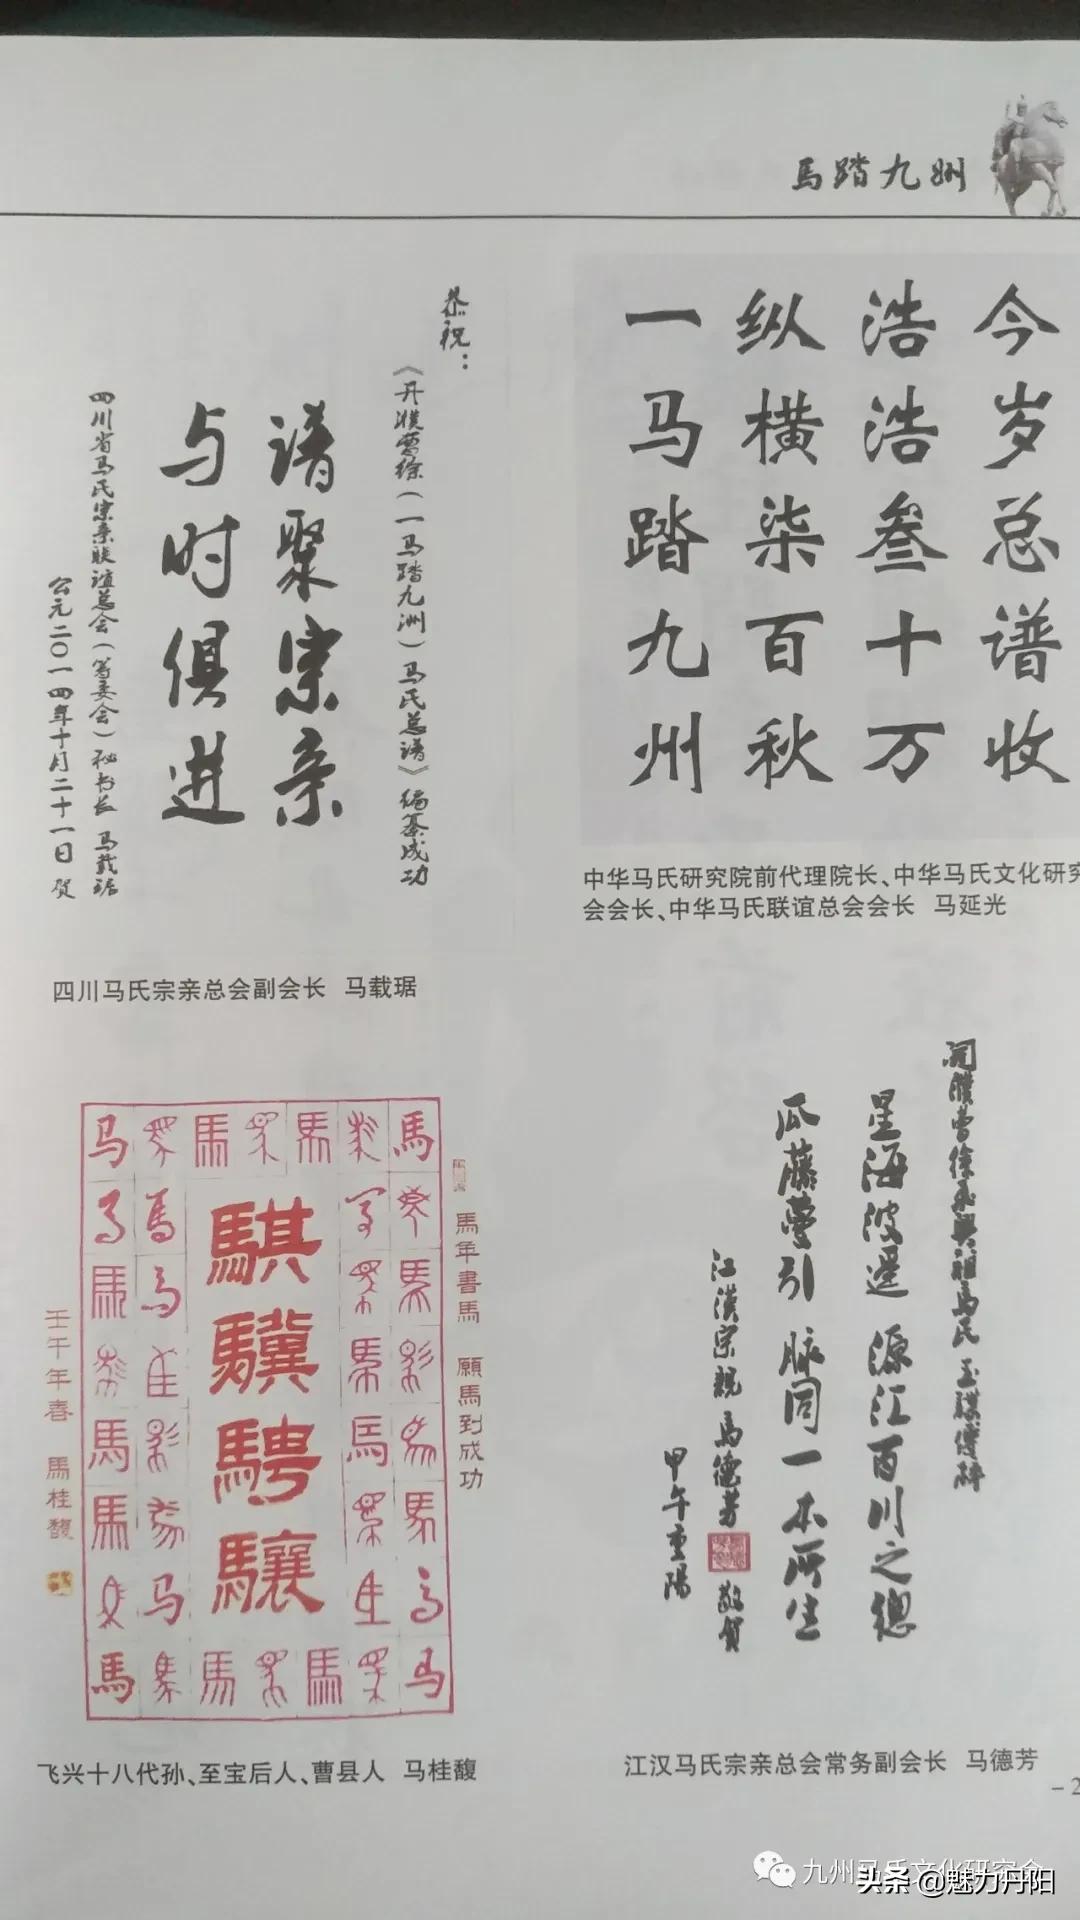 马踏九洲
今岁总谱收
浩浩叁十万
纵横柒百秋
一马踏九州
中华马氏研究院前代理院长、中华马氏文化研究
会会长、中华马氏联谊总会会长 马延光
恭祝：
《丹濮曹徐(一马踏九洲)马氏总谱》编纂成功
谱聚宗亲
与时俱进
四川省马氏宗亲联谊总会(筹委会)秘书长 马载琚
公元二〇一四年十月二十一日 贺
四川马氏宗亲总会副会长 马载琚
馬年書馬 願馬到成功
騏驥騁驤
壬午年春 馬桂馥
飞兴十八代孙、至宝后人、曹县人 马桂馥
濮曹徐飛興祖馬氏玉牒
星海波遥 源江百川之總
瓜藤蔓引 脉同一本所生
江漢宗親 馬德芳 敬賀
甲午重陽
江汉马氏宗亲总会常务副会长 马德芳
九州马氏文化研究会
头条 @魅力丹阳